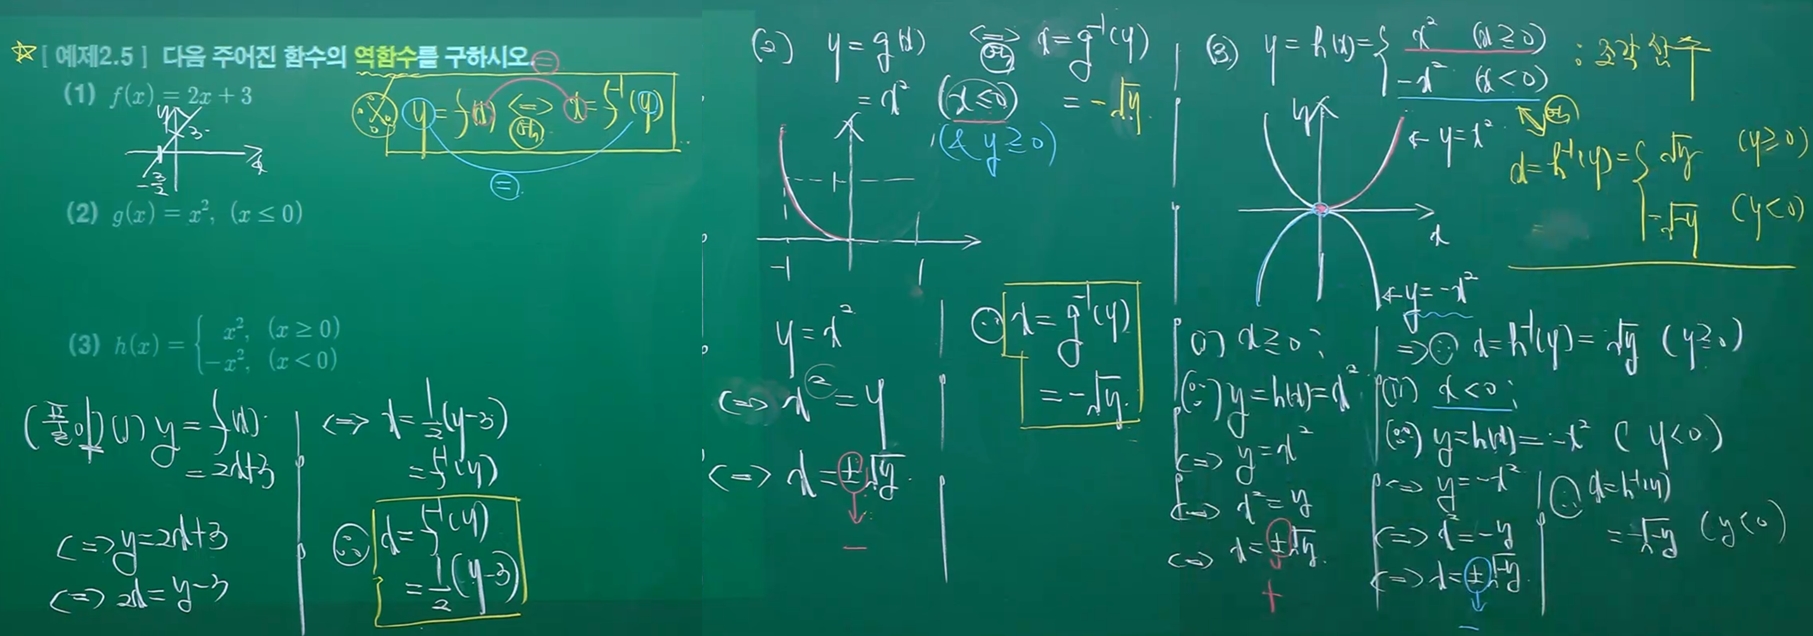 ☆ [ 예제2.5 ] 다음 주어진 함수의 역함수를 구하시오.
(1) f(x) = 2x + 3
y = f(x) ⟺ x = f⁻¹(y)
=
=
y
3
x
-3/2
(2) g(x) = x², (x ≤ 0)
(3) h(x) = { x², (x ≥ 0)
-x², (x < 0)
(풀이) (1) y = f(x)
= 2x+3
⟺ y = 2x+3
⟺ 2x = y-3
⟺ x = 1/2 (y-3)
= f⁻¹(y)
∴ x = f⁻¹(y)
= 1/2 (y-3)
(2) y = g(x) ⟺ x = g⁻¹(y)
= x² (x ≤ 0) = -√y
(& y ≥ 0)
1
-1 1
y = x²
⟺ x² = y
⟺ x = ±√y
-
∴ x = g⁻¹(y)
= -√y
(3) y = h(x) = { x² (x ≥ 0)
-x² (x < 0)
: 조각함수
y
x
← y = x²
← y = -x²
x = h⁻¹(y) = { √y (y ≥ 0)
-√-y (y < 0)
(i) x ≥ 0 ;
(∵) y = h(x) = x²
⟺ y = x²
⟺ x² = y
⟺ x = ±√y
+
⟹ ∴ x = h⁻¹(y) = √y (y ≥ 0)
(ii) x < 0 ;
(∵) y = h(x) = -x² (y < 0)
⟺ y = -x²
⟺ x² = -y
⟺ x = ±√-y
-
∴ x = h⁻¹(y)
= -√-y (y < 0)